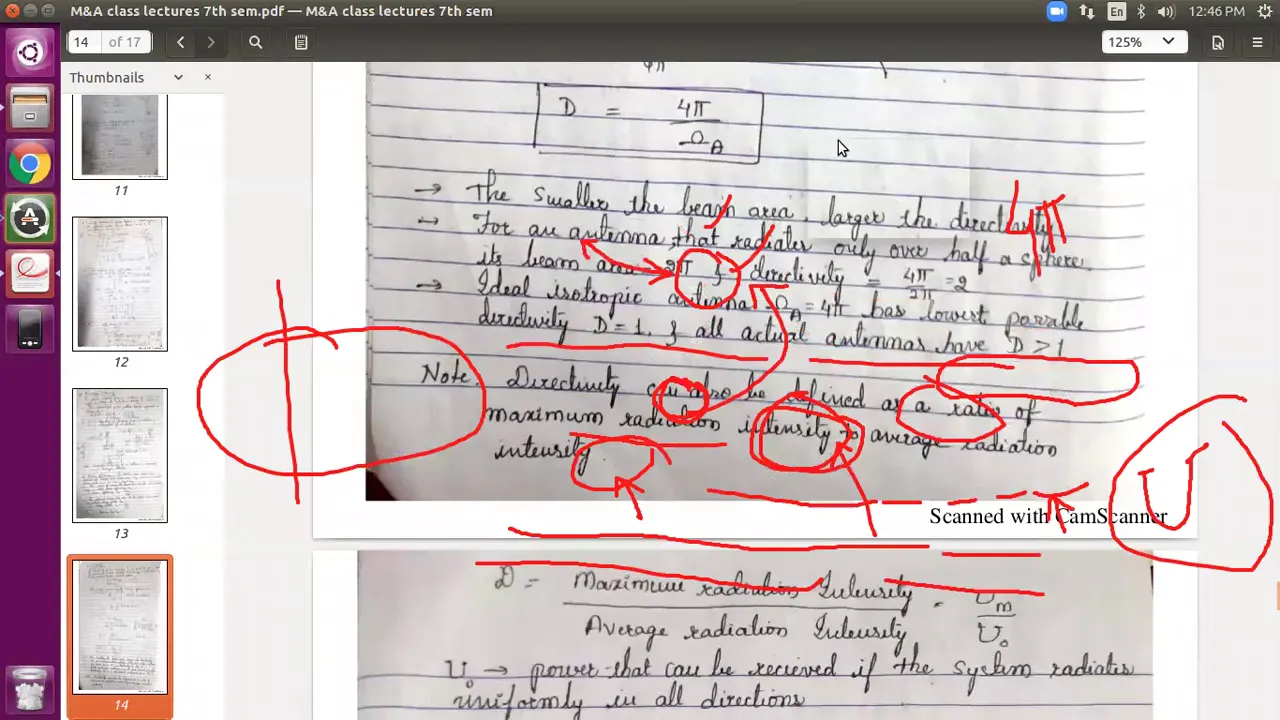 M&A class lectures 7th sem.pdf — M&A class lectures 7th sem
En
12:46 PM
14 of 17
125%
Thumbnails
11
12
13
14
4π
D = 4π / Ω_A
→ The smaller the beam area larger the directivity
→ For an antenna that radiates only over half a sphere
its beam area 2π & directivity = 4π/2π = 2
→ Ideal isotropic antenna Ω_A = 4π has lowest possible
directivity D = 1, & all actual antennas have D > 1
4π
Note: Directivity can also be defined as a ratio of
maximum radiation intensity to average radiation
intensity
U
Scanned with CamScanner
D = Maximum radiation Intensity / Average radiation Intensity = U_m / U_o
U_o → power that can be recieved if the system radiates
uniformly in all directions